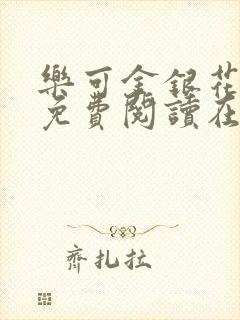 樂可金銀花
免費閱讀在
齊扎拉